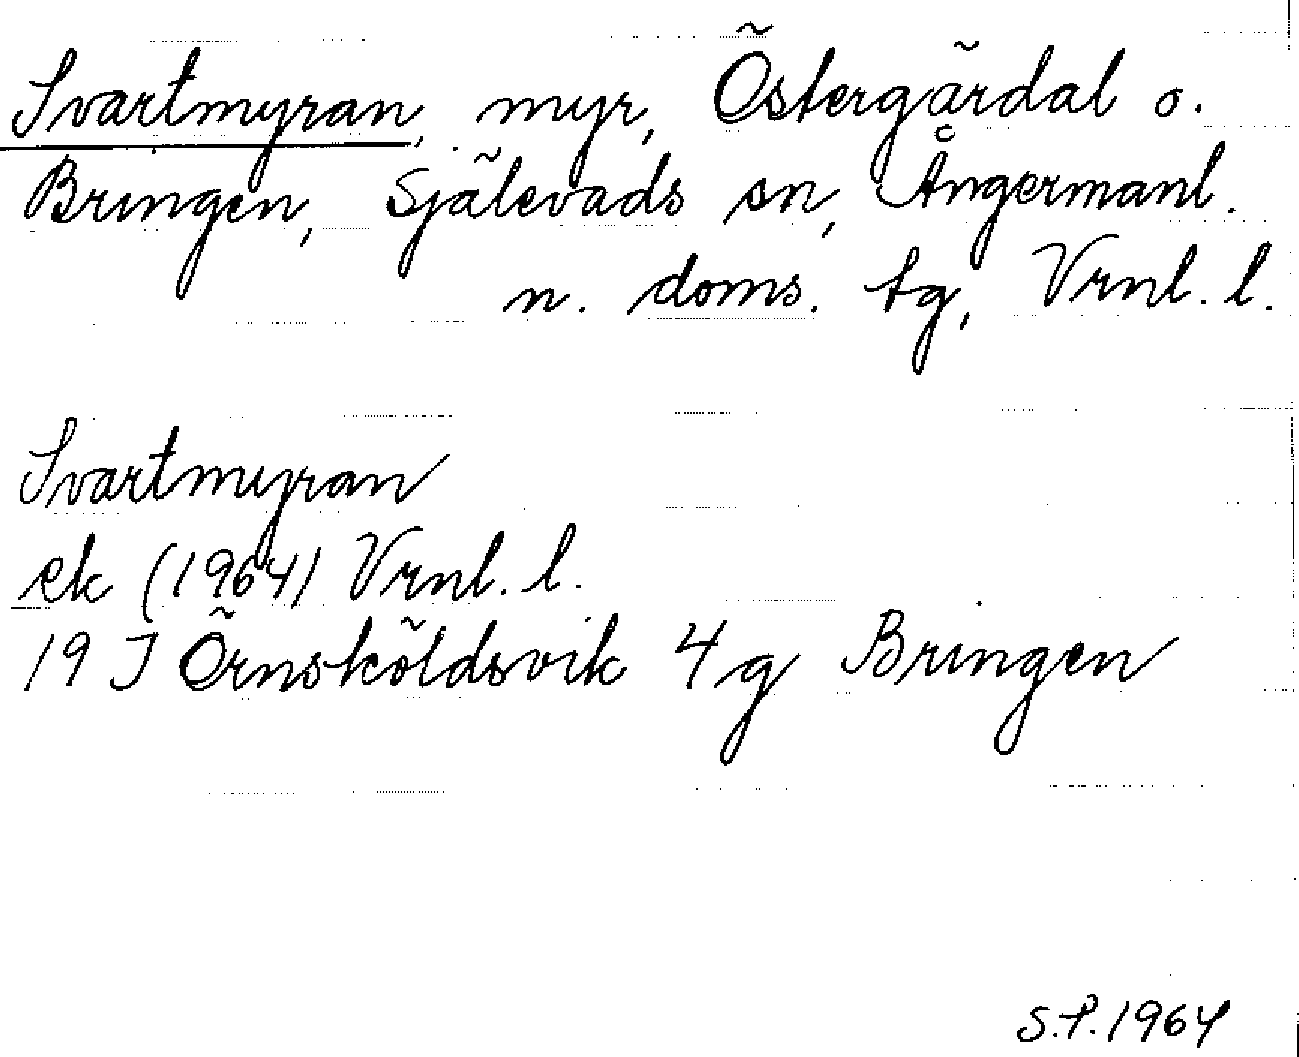 Svartmyran, myr, Östergärdal o.
Bringen, Själevads sn, Ångermanl.
n. doms. tg, Vrnl. l.
Svartmyran
ek (1964) Vrnl. l.
19 J Örnsköldsvik 4 g Bringen
S.P. 1964